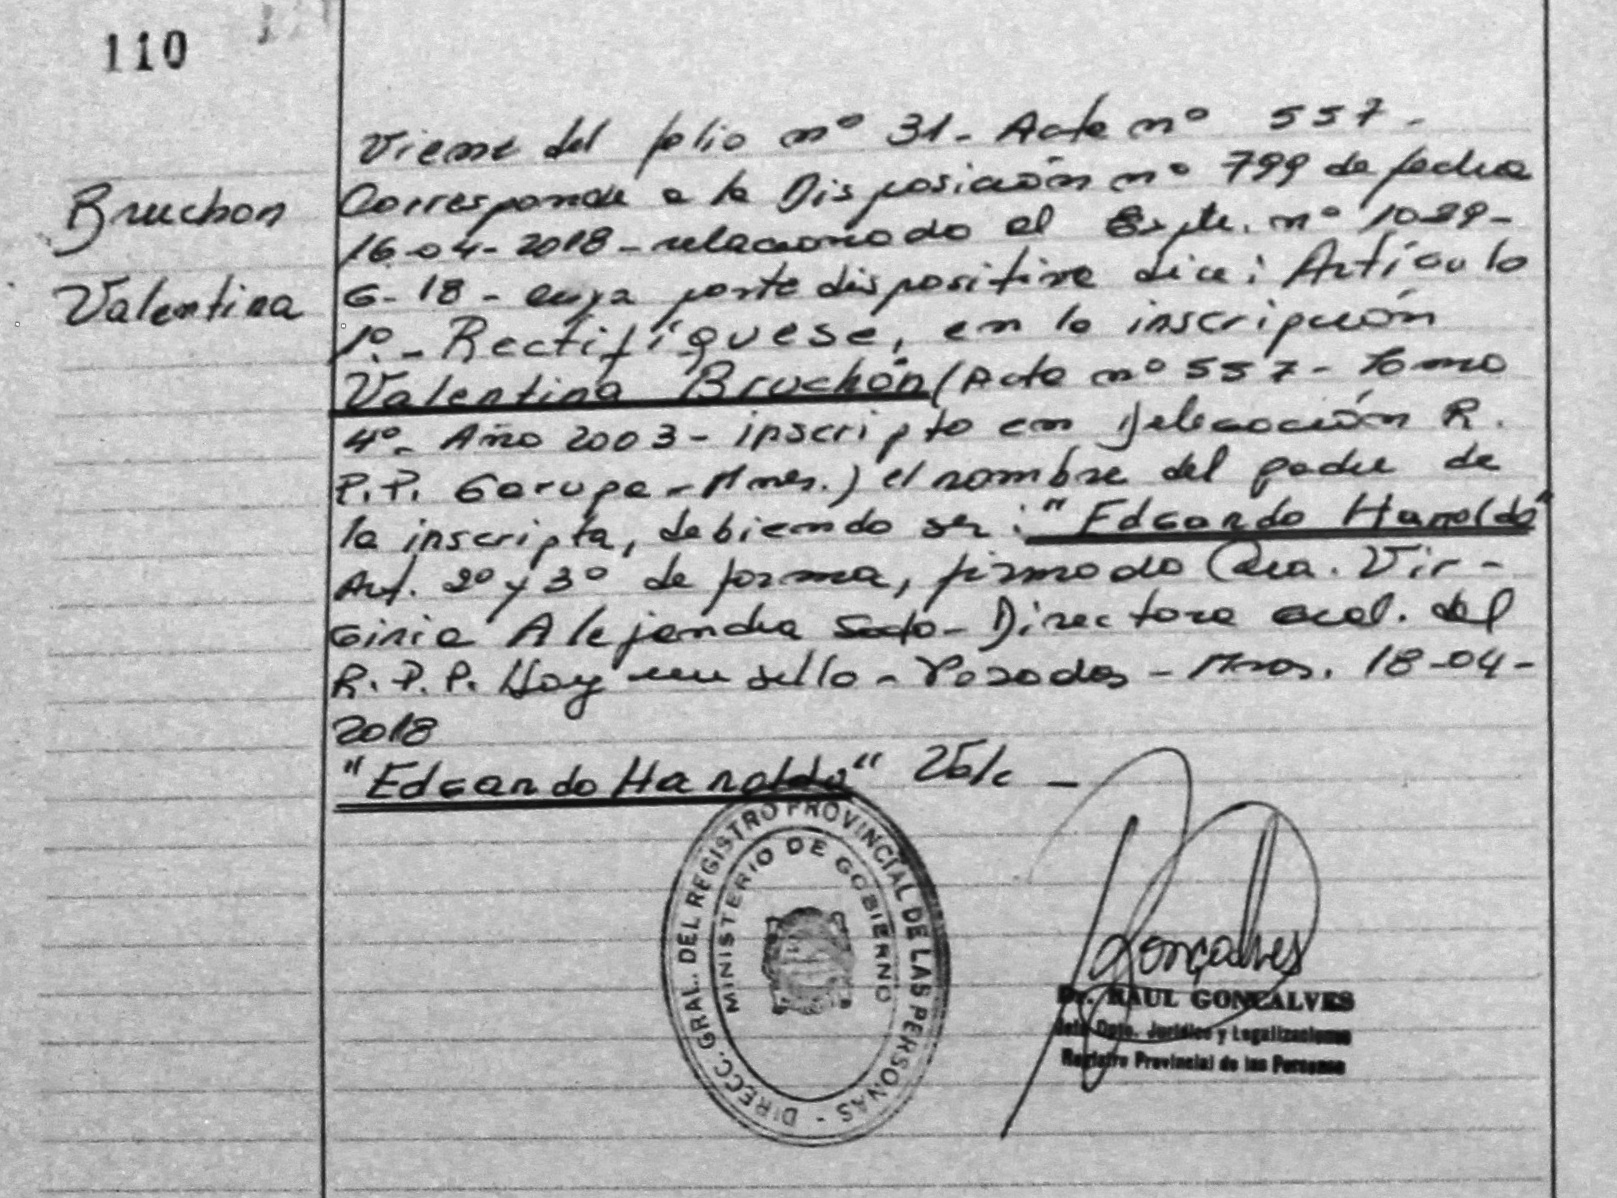 110
Bruchon
Valentina
Viene del folio nº 31 - Acta nº 557 -
Corresponde a la Disposición nº 799 de fecha
16-04-2018 - relacionado al Expte. nº 1029-
G-18 - cuya parte dispositiva dice: Artículo
1º.- Rectifíquese, en la inscripción
Valentina Bruchón (Acta nº 557 - Tomo
4º- Año 2003 - inscripto en Delegación R.
P.P. Garupa - Mnes.) el nombre del padre de
la inscripta, debiendo ser: "Edgardo Haroldo"
Art. 2º y 3º de forma, firmado Dra. Vir-
ginia Alejandra - Directora Gral. del
R.P.P. Hay un sello - Posadas - Mnes. 18-04-
2018
"Edgardo Haroldo" Vale -
DIRECC. GRAL. DEL REGISTRO PROVINCIAL DE LAS PERSONAS -
MINISTERIO DE GOBIERNO
Gonçalves
Dr. RAUL GONÇALVES
Jefe Dpto. Jurídico y Legalizaciones
Registro Provincial de las Personas